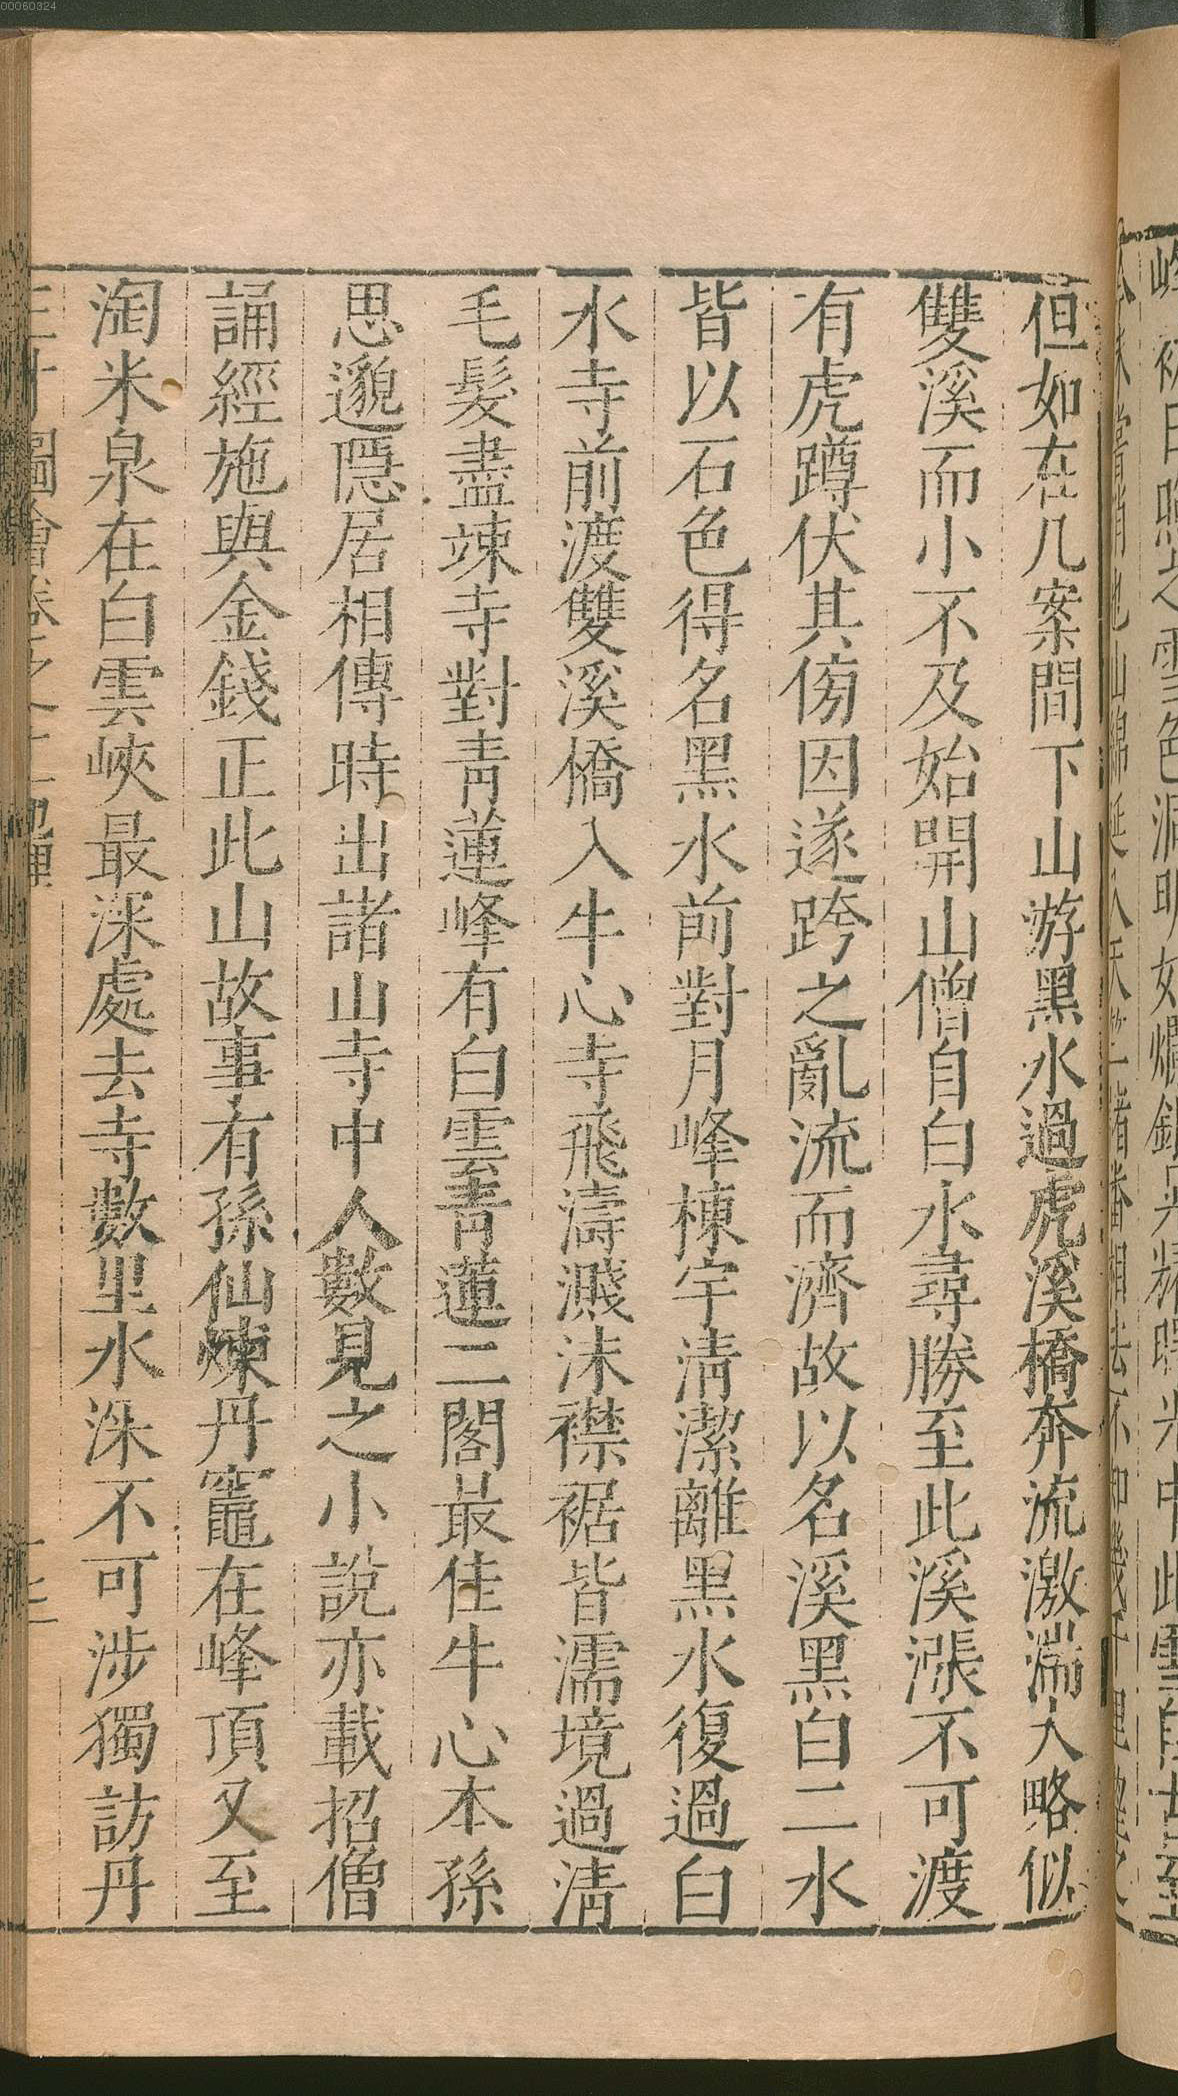 但如在几案間下山游黑水過虎溪橋奔流激湍大略似
雙溪而小不及始開山僧自白水尋勝至此溪漲不可渡
有虎蹲伏其傍因遂跨之亂流而濟故以名溪黑白二水
皆以石色得名黑水前對月峰棟宇清潔離黑水復過白
水寺前渡雙溪橋入牛心寺飛濤濺沫襟裾皆濡境過清
毛髮盡竦寺對青蓮峰有白雲青蓮二閣最佳牛心本孫
思邈隱居相傳時出諸山寺中人數見之小說亦載招僧
誦經施與金錢正此山故事有孫仙煉丹竈在峰頂又至
淘米泉在白雲峽最深處去寺數里水深不可涉獨訪丹
00060324